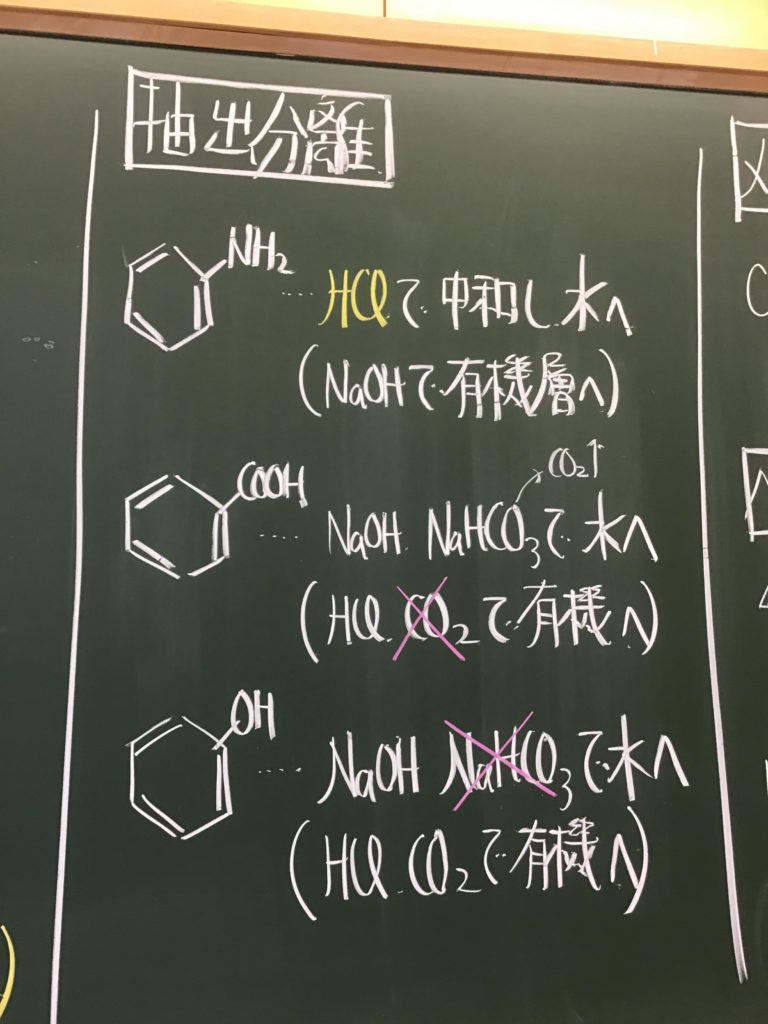 抽出分離
NH₂
HClで中和し水へ
(NaOHで有機層へ)
CO₂↑
COOH
NaOH NaHCO₃で水へ
(HCl CO₂で有機へ)
OH
NaOH NaHCO₃で水へ
(HCl CO₂で有機へ)